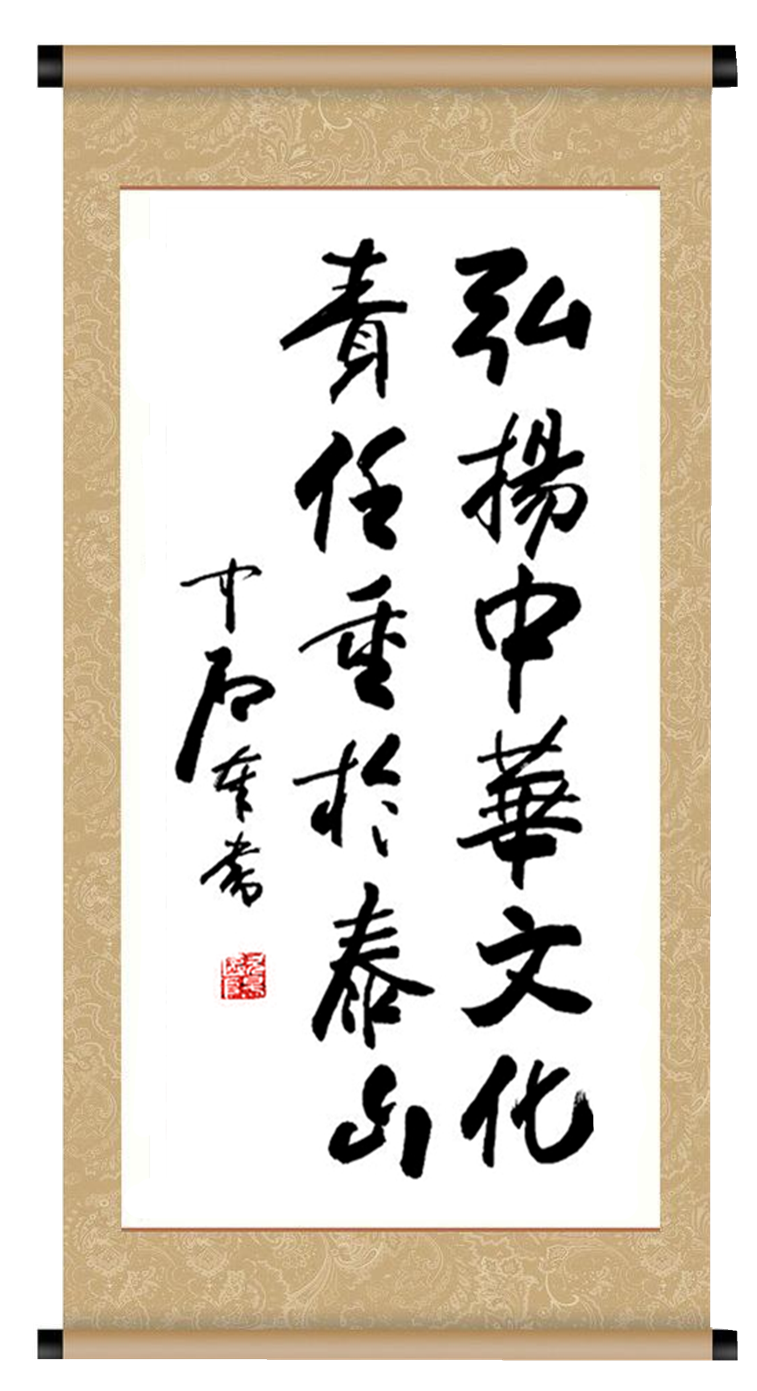 弘揚中華文化
責任重於泰山